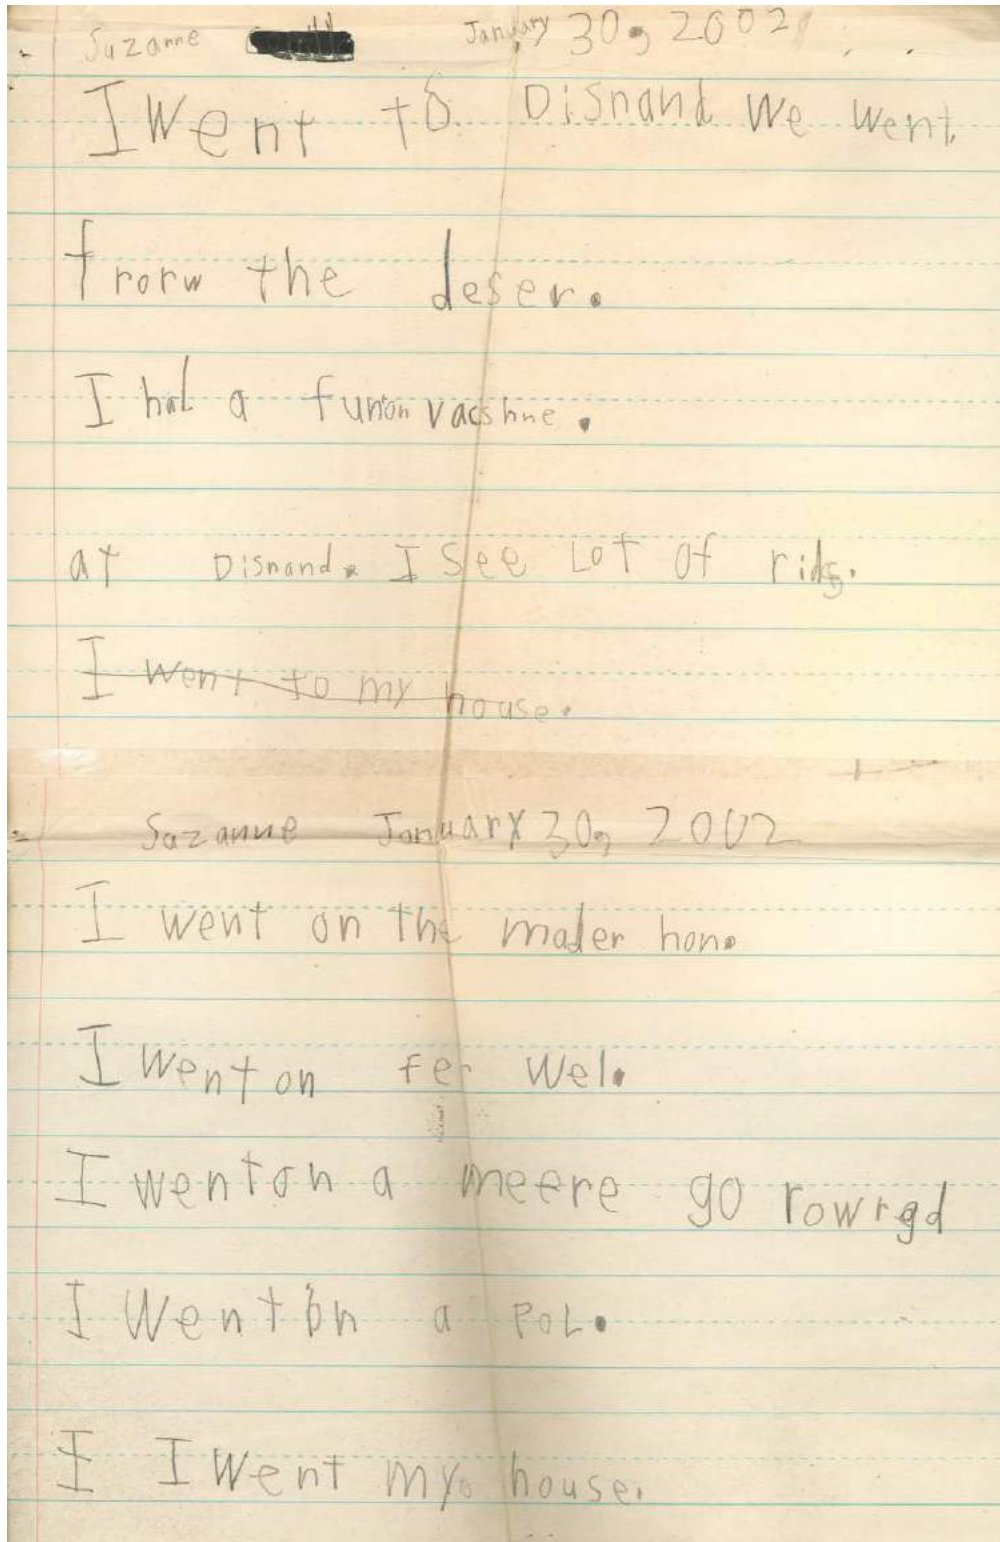 Suzanne January 30, 2002
I went to Disnand We went
frorw the deser.
I had a funon vacshne.
at Disnand. I see Lot of rids.
I went to my house.
Suzanne January 30, 2002
I went on the mader hon.
I went on fer wel.
I went on a meere go rowrgd
I went on a POL.
I I went my house.